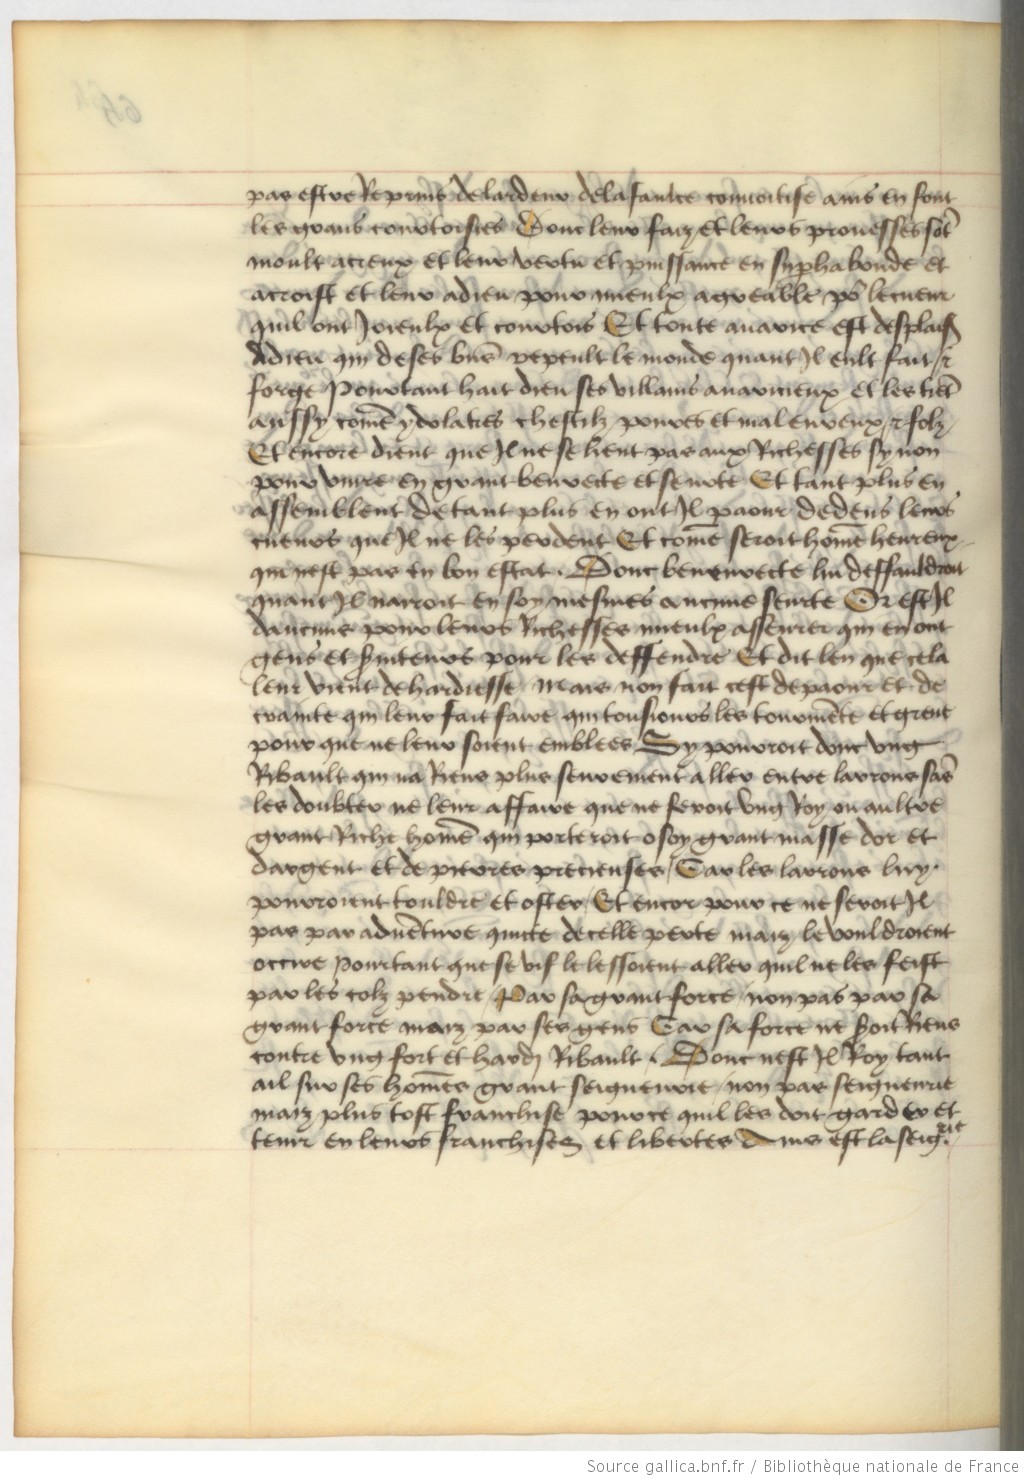 pas estre Reprins de lardeur de la faulce couuoitise ains en font
les grans courtoisies Donc leur faiz et leurs prouesses sõt
moult acreux et leur vertu et puissance en suphabonde et
acroist et leur adieu pour mieulx agreable po᷑ le cueur
quil ont Joieulx et courtois Et toute auarice est desplais᷑
Adieu qui de ses biẽs repeult le monde quant Il eult fait &
forge Pourtant hait dieu ses villains auaricieux et les tiẽt
aussy cõme ydolatres chestilz poures et maleureux & folz
Et encore dient que Il ne se lient pas aux Richesses sy non
pour viure en grant beneurete et seurte Et tant plus en
assemblent de tant plus en ont Il paour dedens leurs
cueurs que Il ne les perdent Et cõme seroit hõme heureux
qui nest pas en bon estat . Donc beneurecte lui deffauldroit
quant Il narroit en soy mesmes aucune seurte Or est Il
daucuns pour leurs Richesses mieulx asseurer qui en ont
gens et s̃uiteurs pour les deffendre Et dit len que cela
leur vient de hardiesse Mais non fait cest de paour et de
crainte qui leur fait faire qui tousiours les tourmẽte et greue
pour que ne leur soient emblees Sy pourroit donc vng
Ribault qui na Riens plus seurement aller entre larrons sãs
les doubter ne leur affaire que ne feroit vng Roy ou aultre
grant Riche hõme qui porteroit o soy grant masse dor et
dargent et de pierres precieuses / Car les larrons luy
pourroient touldre et oster / Et encor pour ce ne seroit Il
pas par aduẽture quicte de celle perte maiz le vouldroient
occire Pourtant que se vif le lessoient aller quil ne les feist
par les colz pendre / Par sa grant force / non pas par sa
grant force maiz par ses gens Car sa force ne s̃oit Riens
contre vng fort et hardj Ribault . Donc nest Il Roy tant
ail sur ses hõmes grant seigneurie / non pas seigneurie
maiz plus tost franchise pource quil les doit garder et
tenir en leurs franchises et libertes Ains est la seig᷑rie
Source gallica.bnf.fr / Bibliothèque nationale de France